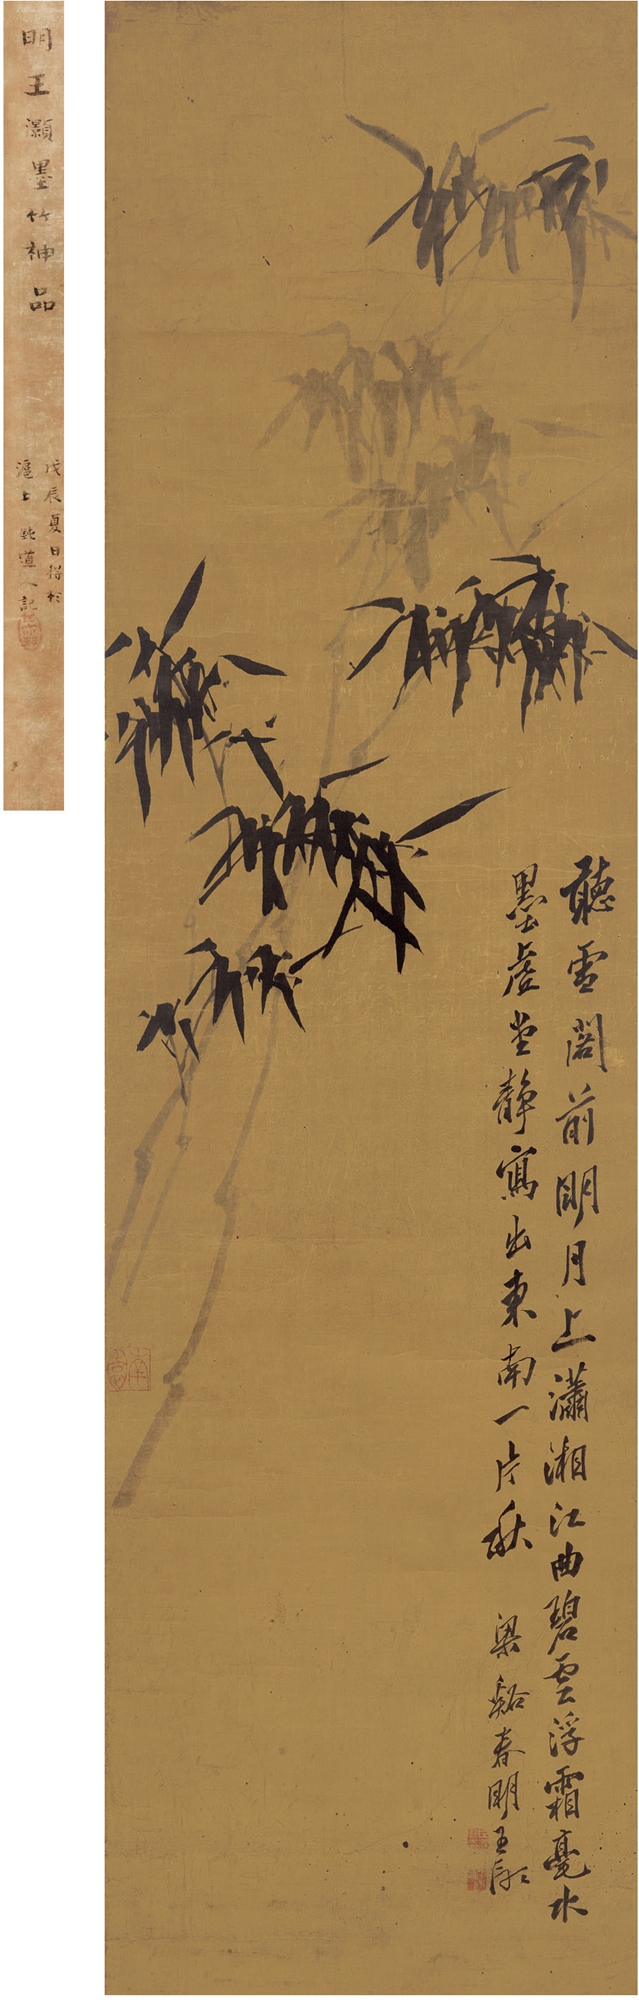 明王灝墨竹神品
戊辰夏日得於
滬上 道人記
聽雪閣前明月上瀟湘江曲碧雲浮霜毫水
墨虛堂靜寫出東南一片秋 梁谿春明王灝